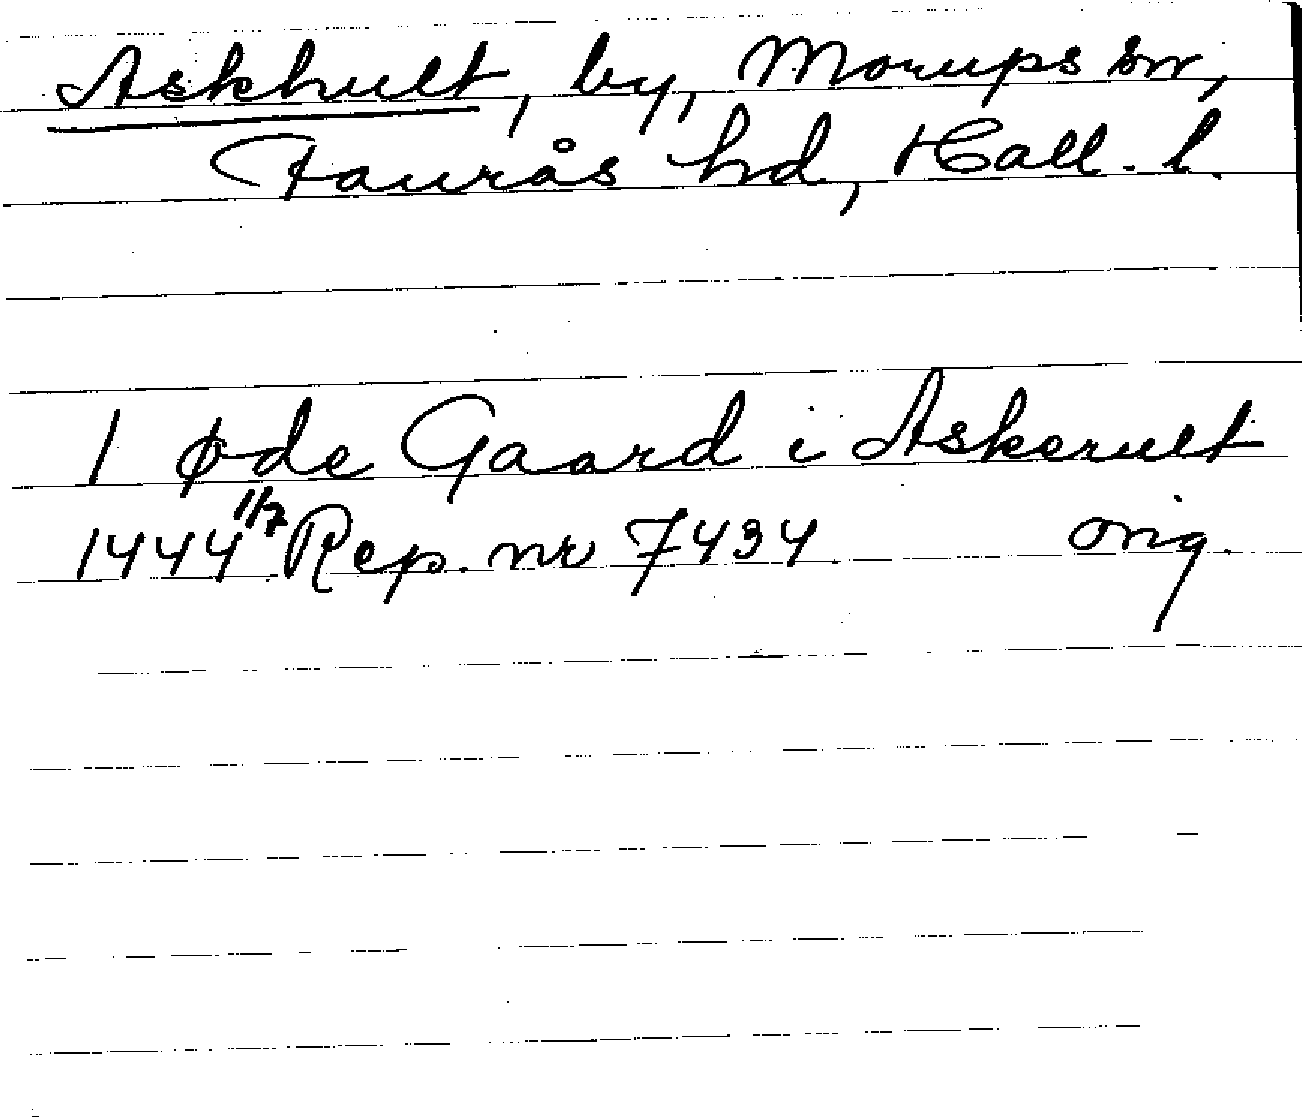 Askhult, by, Morups sn,
Faurås hd, Hall. l.
1 øde Gaard i Askerult
1444 1/7 Rep. nr 7434 orig.